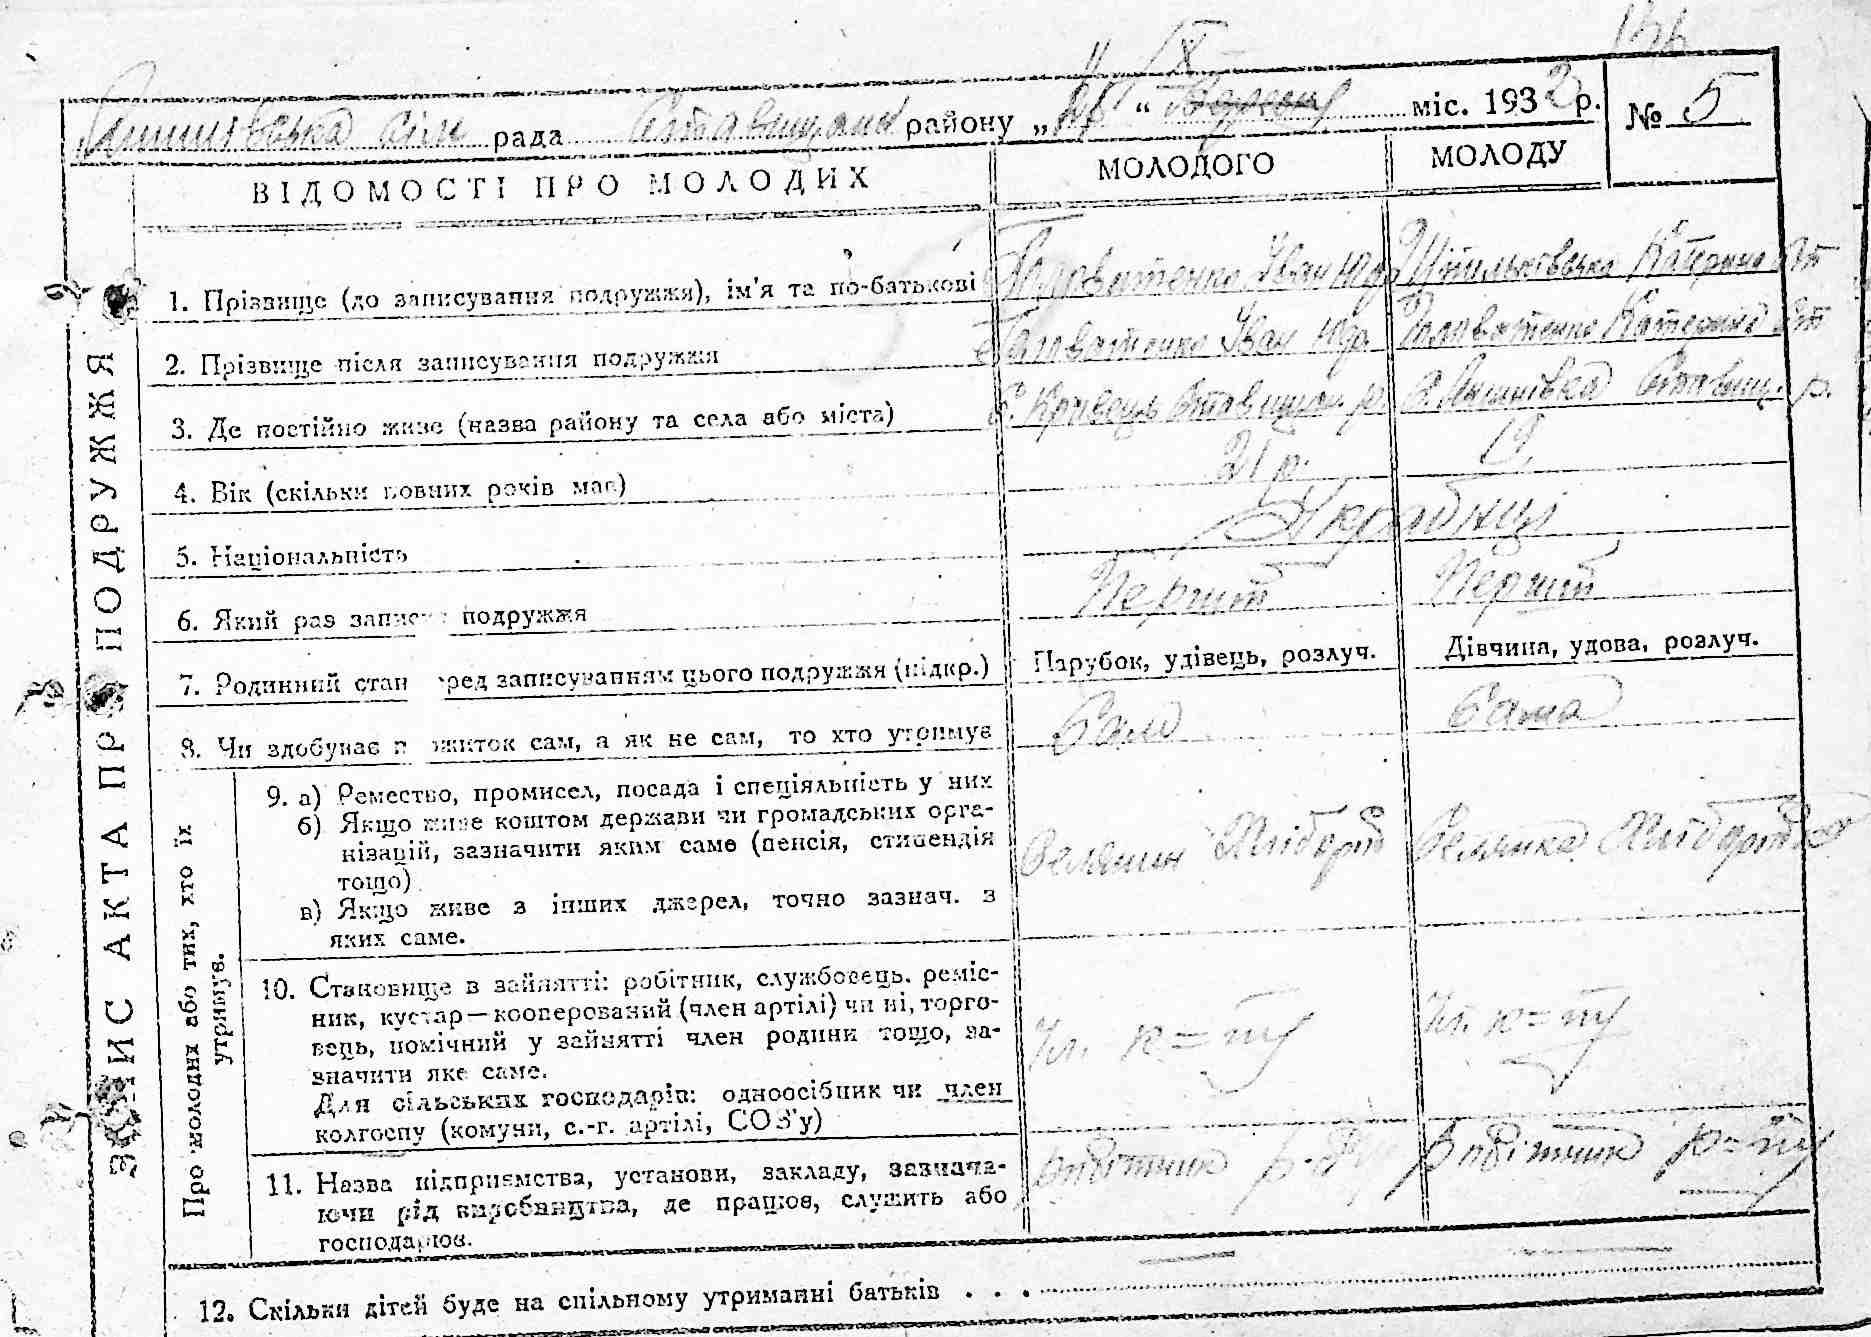 рада Ставищан району „ “ міс. 1932 р. № 5
ВІДОМОСТІ ПРО МОЛОДИХ МОЛОДОГО МОЛОДУ
1. Прізвище (до записування подружжя), ім'я та по-батькові Головатенко Іван Катерина
2. Прізвище після записування подружжя Головатенко Іван Головатенко Катерина
3. Де постійно живе (назва району та села або міста) с. Кривець Ставищан. р. с. Янишівка Ставищ. р.
4. Вік (скільки повних років має) 21 р. 19
5. Національність Українці
6. Який раз записує подружжя Перший Перший
7. Родинний стан перед записуванням цього подружжя (підкр.) Парубок, удівець, розлуч. Дівчина, удова, розлуч.
8. Чи здобуває прожиток сам, а як не сам, то хто утримує Сам Сама
9. а) Ремество, промисел, посада і спеціяльність у них
б) Якщо живе коштом держави чи громадських орга-
нізацій, зазначити яким саме (пенсія, стипендія
тощо) Селянин Хлібороб Селянка
в) Якщо живе з інших джерел, точно зазнач. з
яких саме.
10. Становище в зайнятті: робітник, службовець, реміс-
ник, кустар—кооперований (член артілі) чи ні, торго-
вець, помічний у зайнятті член родини тощо, за-
значити яке саме. Чл. Чл.
Для сільських господарів: одноосібник чи член
колгоспу (комуни, с.-г. артілі, СОЗ'у)
11. Назва підприємства, установи, закладу, зазнача-
ючи рід виробництва, де працює, служить або
господарює. робітник робітник
12. Скільки дітей буде на спільному утриманні батьків . . .
ЗАПИС АКТА ПРО ПОДРУЖЖЯ
Про молодих або тих, хто їх
утримує.